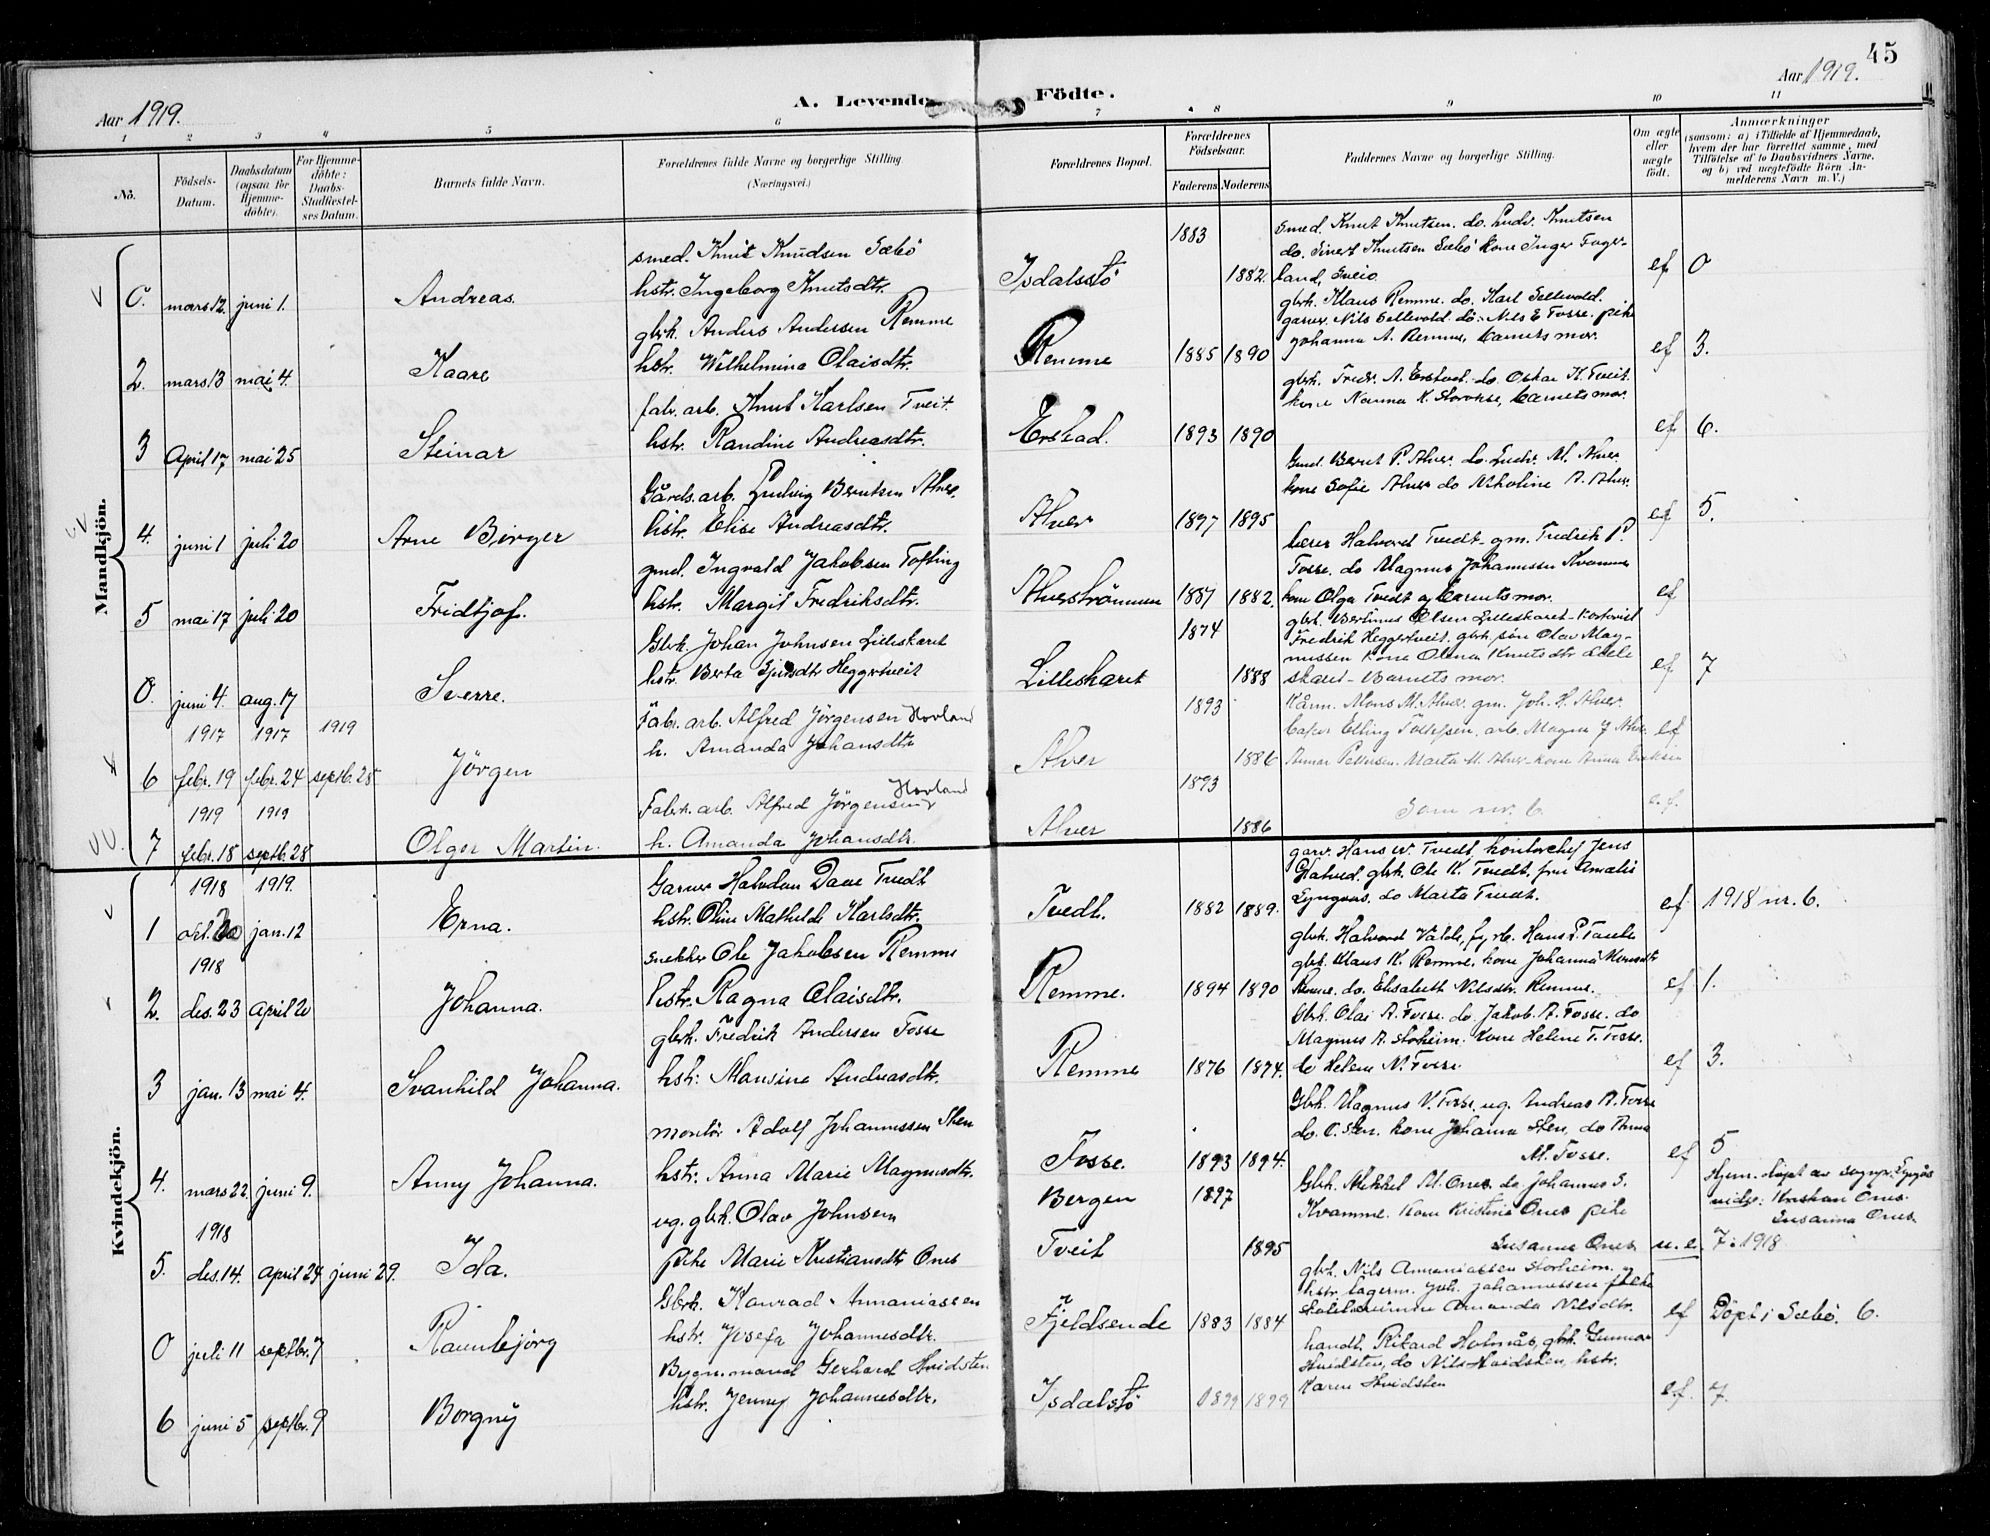 45
Aar 1919.
A. Levende Födte.
Aar 1919.
1 2 3 4 5 6 7 8 9 10 11
No.
Födsels-Datum.
Daabsdatum (ogsaa för Hjemme-döbte).
For Hjemme-döbte: Daabs-Stadfæstel-ses Datum.
Barnets fulde Navn.
Forældrenes fulde Navne og borgerlige Stilling (Næringsvei.)
Forældrenes Bopæl.
Forældrenes Födselsaar.
Faderens Moderens
Faddernes Navne og borgerlige Stilling.
Om ægte eller uægte födt.
Anmærkninger
(saasom: a) i Tilfælde af Hjemmedaab, hvem der har forrettet samme, med Tilföielse af to Daabsvidners Navne, og b) ved uægtefödte Börn An-melderens Navn m. V.)
Mandkjön.
0. mars 12. juni 1. Andreas.
smed. Knut Knudsen Sæbö
hstr. Ingeborg Knutsdtr.
Isdalsstö 1883 1882.
smed. Knut Knutsen. do. Ludv. Knutsen
do. Sivert Knutsen Sæbö kone Inger Fager-
land, Sveio
ef 0
2. mars 13 mai 4. Kaare
gbrk. Anders Andersen Remme
hstr. Wilhelmina Olaisdtr.
Remme 1885 1890
gbrk. Klaus Remme. do. Karl Sellevold.
garver. Nils Sellevold. do. Nils E Fosse. pike
Johanna A. Remme, barnets mor.
ef 3.
3 April 17 mai 25 Steinar
fabr. arb. Knut Karlsen Tveit.
hstr. Randine Andreasdtr.
Erstad. 1893 1890
gbrk. Fredr. A. Erstad. do. Oskar K. Tveit.
kone Nanna K. barnets mor.
ef 6.
4. juni 1 juli 20 Arne Birger
Gårds. arb. Ludvig Berntsen Alver.
hstr. Elise Andreasdtr.
Alver 1897 1895
Gmd. Bernt P. Alver. do. Ludv. M. Alver.
kone Sofie Alver do Nikoline A. Alver.
ef 5.
5 mai 17 juli 20 Fridtjof.
gmd. Ingvald Jakobsen Tofting
hstr. Margit Fredriksdtr.
Alverströmmen 1887 1882.
lærer Halvard Tvedt. gm. Fredrik P.
Fosse. do Magnus Johannessen Kvamme
kone Olga Tvedt og barnets mor.
ef
0. juni 4. aug. 17 Sverre.
Gbrk. Johan Johnsen Lilleskaret
hstr. Berta Heggertveit
Lilleskaret 1874 1888
gbk. Bertinus Olsen Lilleskaret
Fredrik Heggertveit. gbk. sön Olav Mag-
nussen kone Olena Knutsdtr Lille-
skaret - Barnets mor.
ef 7
1917 1917 1919
6 febr. 19 febr. 24 septb. 28 Jörgen
Fabr. arb. Alfred Jörgensen Hovland
h. Amanda Johansdtr
Alver 1893 1886
Mons M. Alver. gm. Joh. H. Alver.
arb. Magne J Alver.
Marta M. Alver - kone Anna
ef
1919 1919
7 febr. 18 septb. 28 Olger Martin.
Fabrk. arb. Alfred Jörgensen Hovland
h. Amanda Johansdtr.
Alver 1893 1886
Som nr. 6.
e.f.
Kvindekjön.
1918 1919.
1 okt. 20 jan. 12 Erna.
Garver Halvdan Dave Tvedt
hstr. Oline Mathilde Karlsdtr.
Tvedt. 1882 1889.
garv. Hans W. Tvedt, kontorchef Jens
gbk. Ole K. Tvedt, fru Amalie
Lyngvær. do Marta Tvedt.
ef 1918 nr. 6.
1918
2. des. 23 April 20 Johanna.
snekker Ole Jakobsen Remme
hstr. Ragna Olaisdtr.
Remme. 1894 1890
gbrk. Halvard Valde, Hans P.
gbk. Klaus K. Remme. kone Johanna Monsdtr
Remme. do. Elisabeth Nilsdtr. Remme.
ef 1.
3 jan. 13 mai 4. Svanhild Johanna.
gbrk. Fredrik Andersen Fosse
hstr. Mansine Andreasdtr.
Remme 1876 1874.
Gbrk. Olai A. Fosse. do. Jakob. A. Fosse. do
Magnus A. Storheim. Kone Helene T. Fosse.
do Helene N. Fosse.
ef 3.
4. mars 22. juni 9. Anny Johanna.
montör Adolf Johannessen Sten
hstr. Anna Marie Magnusdtr.
Fosse. 1893 1894.
Gbk. Magnus V. Fosse, ug. Andreas A. Fosse
do. O. Sten. kone Johanna Sten, do Anna
M. Fosse.
ef 5
1918
5. des. 14. April 24 juni 29. Ida.
ug. gbrk. Olav Johnsen
pike Marie Kristiansdtr Ones
Bergen 1897
Tveit 1895
Gbk. Mikkel M. Ones do Johannes S.
Kvamme. Kone Kristine Ones pike
Susanne Ones
u.e. 7. 1918
Hjem. döpt av sogpr. Lyngås
vidne: Kristian Ones.
Susanna Ones.
0 juli 11 septbr. 7 Raunbjörg
Gbrk. Konrad Annaniassen
hstr. Josefa Johannesdtr.
Fjeldsende 1883 1884
gbk. Nils Annaniassen Storheim.
hstr. lagerm. Joh. Johannessen
Amanda Nilsdtr.
ef Döpt i Sæbö. 6.
6 juni 5 septbr. 9 Borgny
Gerhard Hvidsten.
hstr. Jenny Johannesdtr.
Isdalstö 1899 1899
handl. Rikard Holmås, gbk. Gunnar
Hvidsten, do Nils Hvidsten, hstr.
Karen Hvidsten
ef. 7.